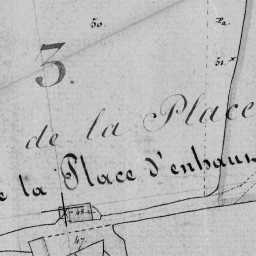 50.
3.
51.
de la Place
la Place d'enhaut
48.
47.